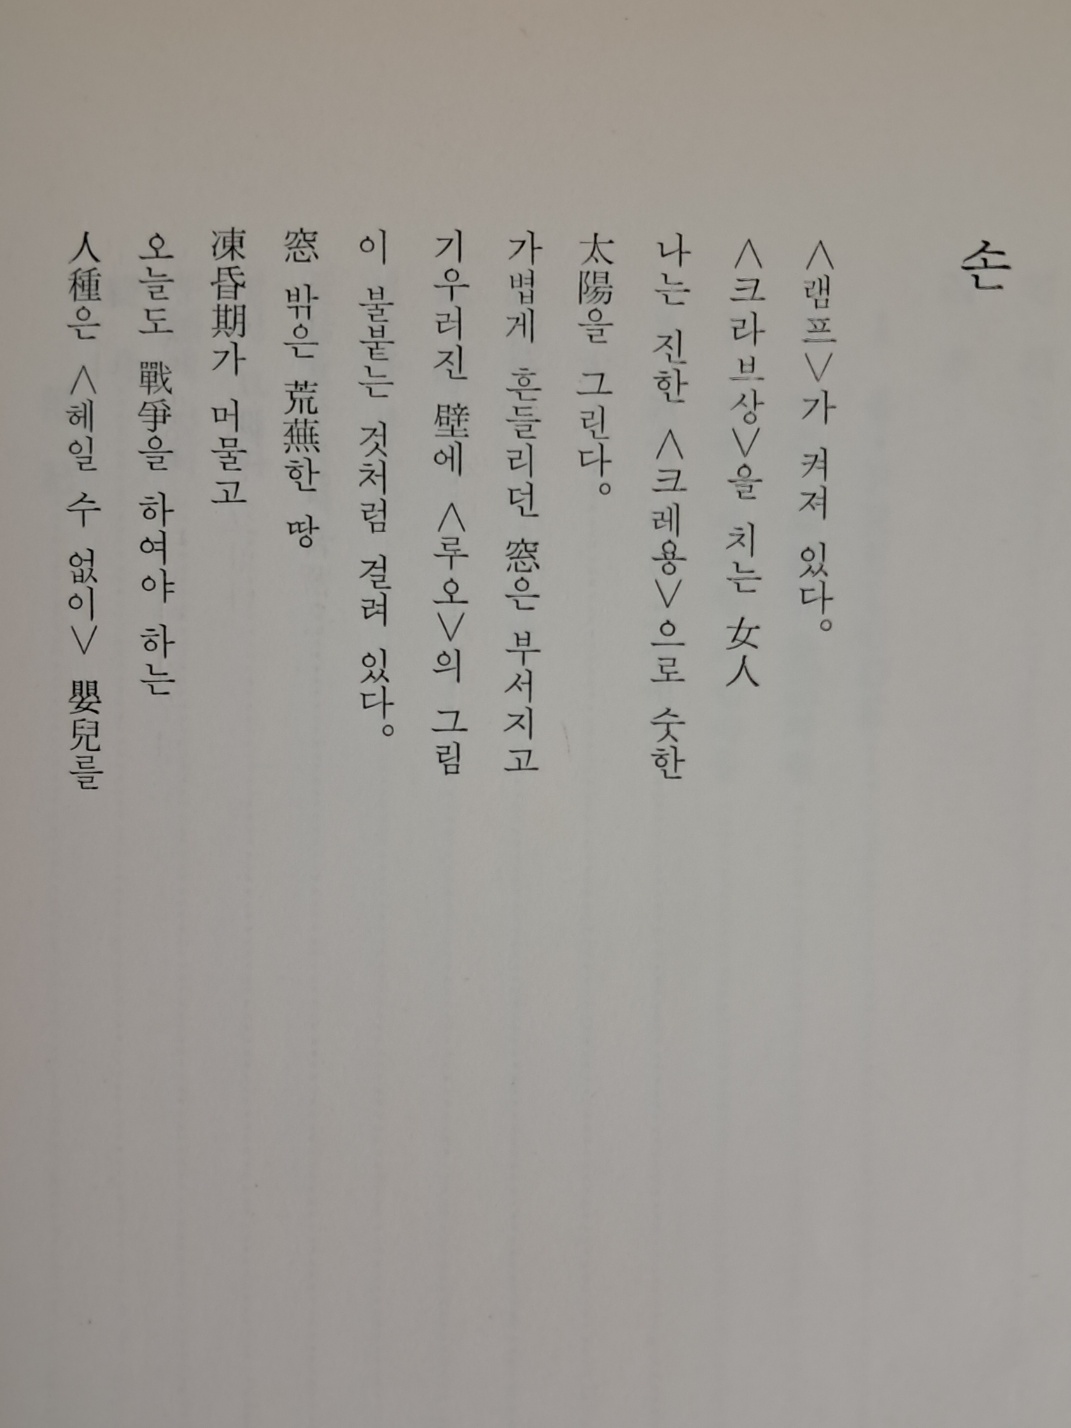 손
<램프>가 켜져 있다。
<크라브상>을 치는 女人
나는 진한 <크레용>으로 숫한
太陽을 그린다。
가볍게 흔들리던 窓은 부서지고
기우러진 壁에 <루오>의 그림
이 불붙는 것처럼 걸려 있다。
窓 밖은 荒蕪한 땅
凍昏期가 머물고
오늘도 戰爭을 하여야 하는
人種은 <헤일 수 없이> 嬰兒를